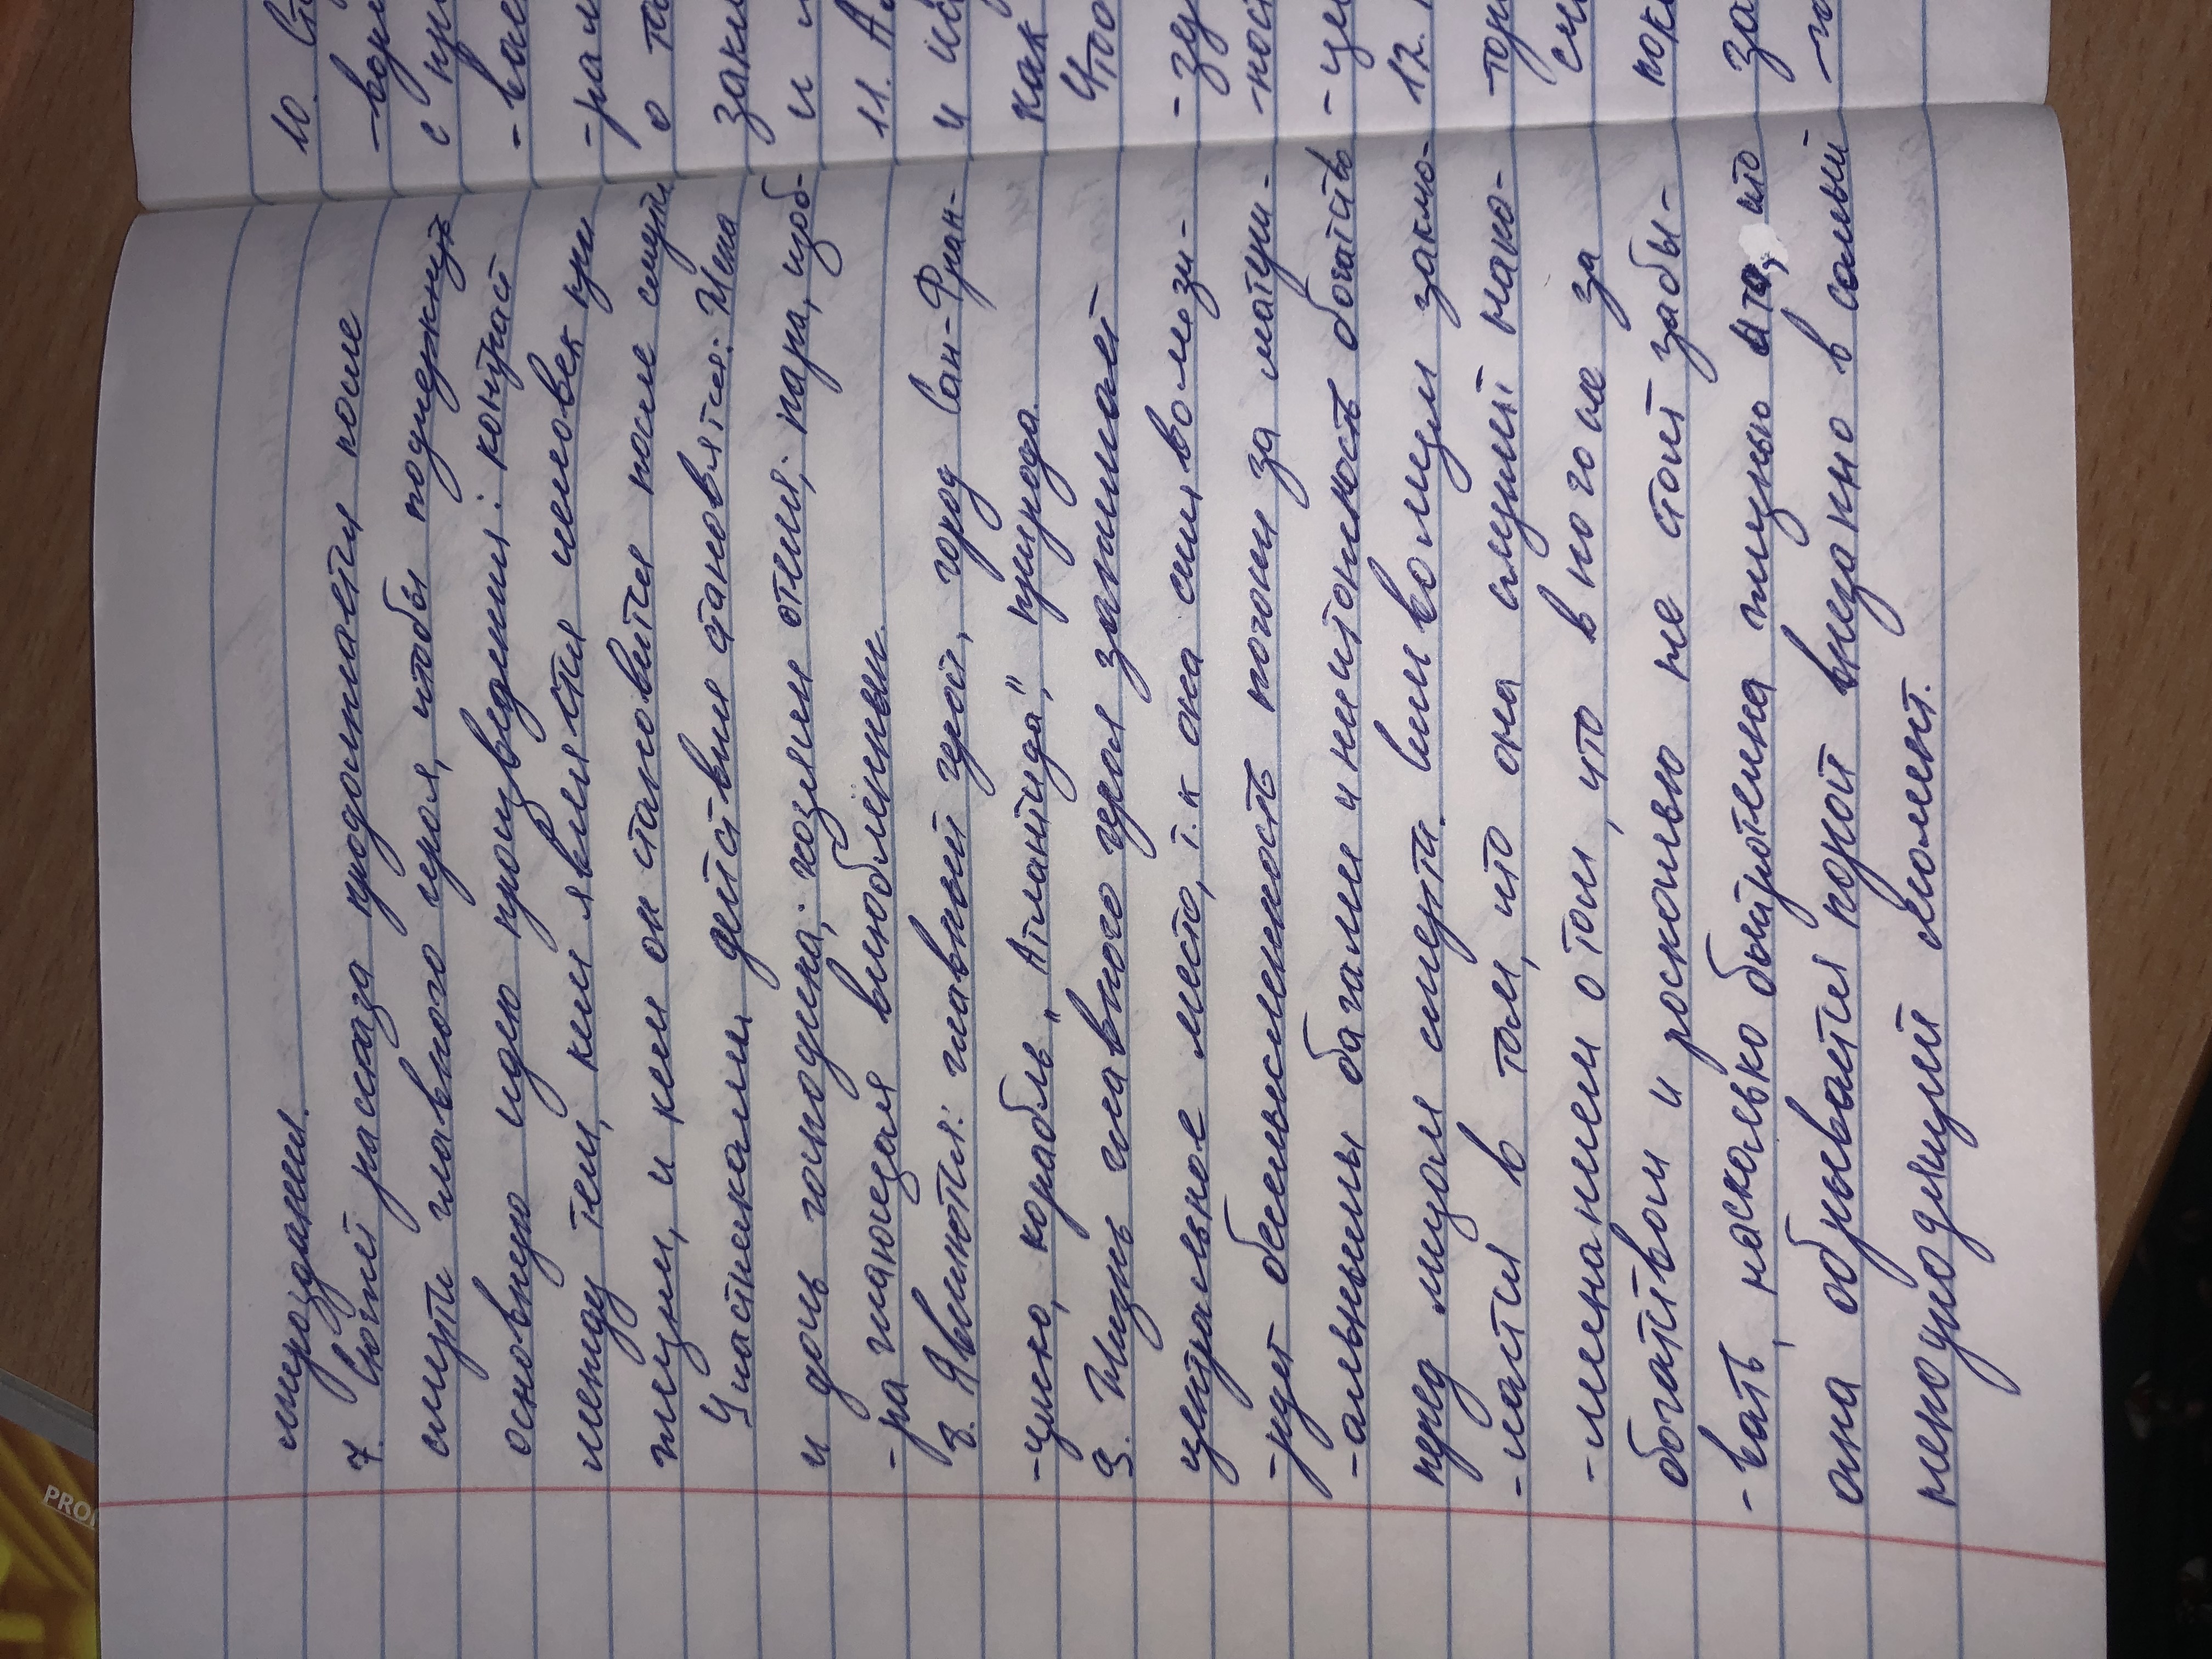 мироздании.
7. Сюжет рассказа продолжается после
смерти главного героя, чтобы подчеркнуть
основную идею произведения: контраст
между тем, кем является человек при
жизни, и кем он становится после смерти
Участниками действия становятся: Жена
и дочь господина; хозяин отеля; пара, изоб-
-ражающая влюбленных.
8. Являются: главный герой, город Сан-Фран-
-циско, корабль „Атлантида", природа.
9. Жизнь главного героя занимает
центральное место, т.к она символизи-
-рует бессмысленность погони за матери-
-альными благами и ничтожность богатств
перед лицом смерти. Символизм заклю-
-чается в том, что она служит напо-
-минанием о том, что в погоне за
богатством и роскошью не стоит забы-
-вать, насколько быстротечна жизнь и то, что
она обрывается порой внезапно в самый
неподходящий момент.
10.
с
о
и
11. А
и
как
Что
12.
PRO